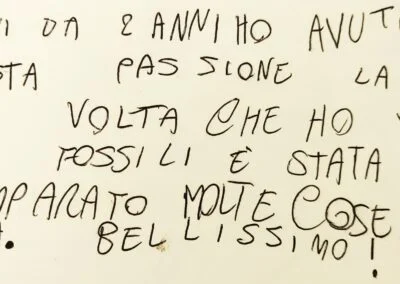 DA 2 ANNI HO AVUT
STA PASSIONE LA
VOLTA CHE HO
FOSSILI È STATA
MPARATO MOLTE COSE
BELLISSIMO!